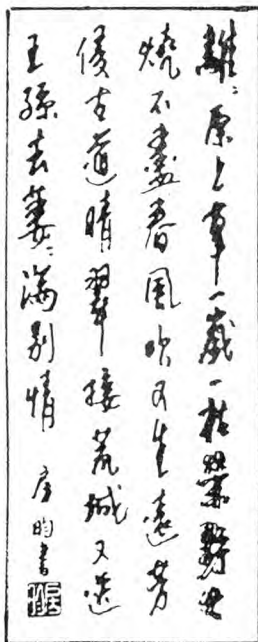 離〻原上草一歲一枯榮野火
燒不盡春風吹又生遠芳
侵古道晴翠接荒城又送
王孫去萋〻滿別情 房昀書